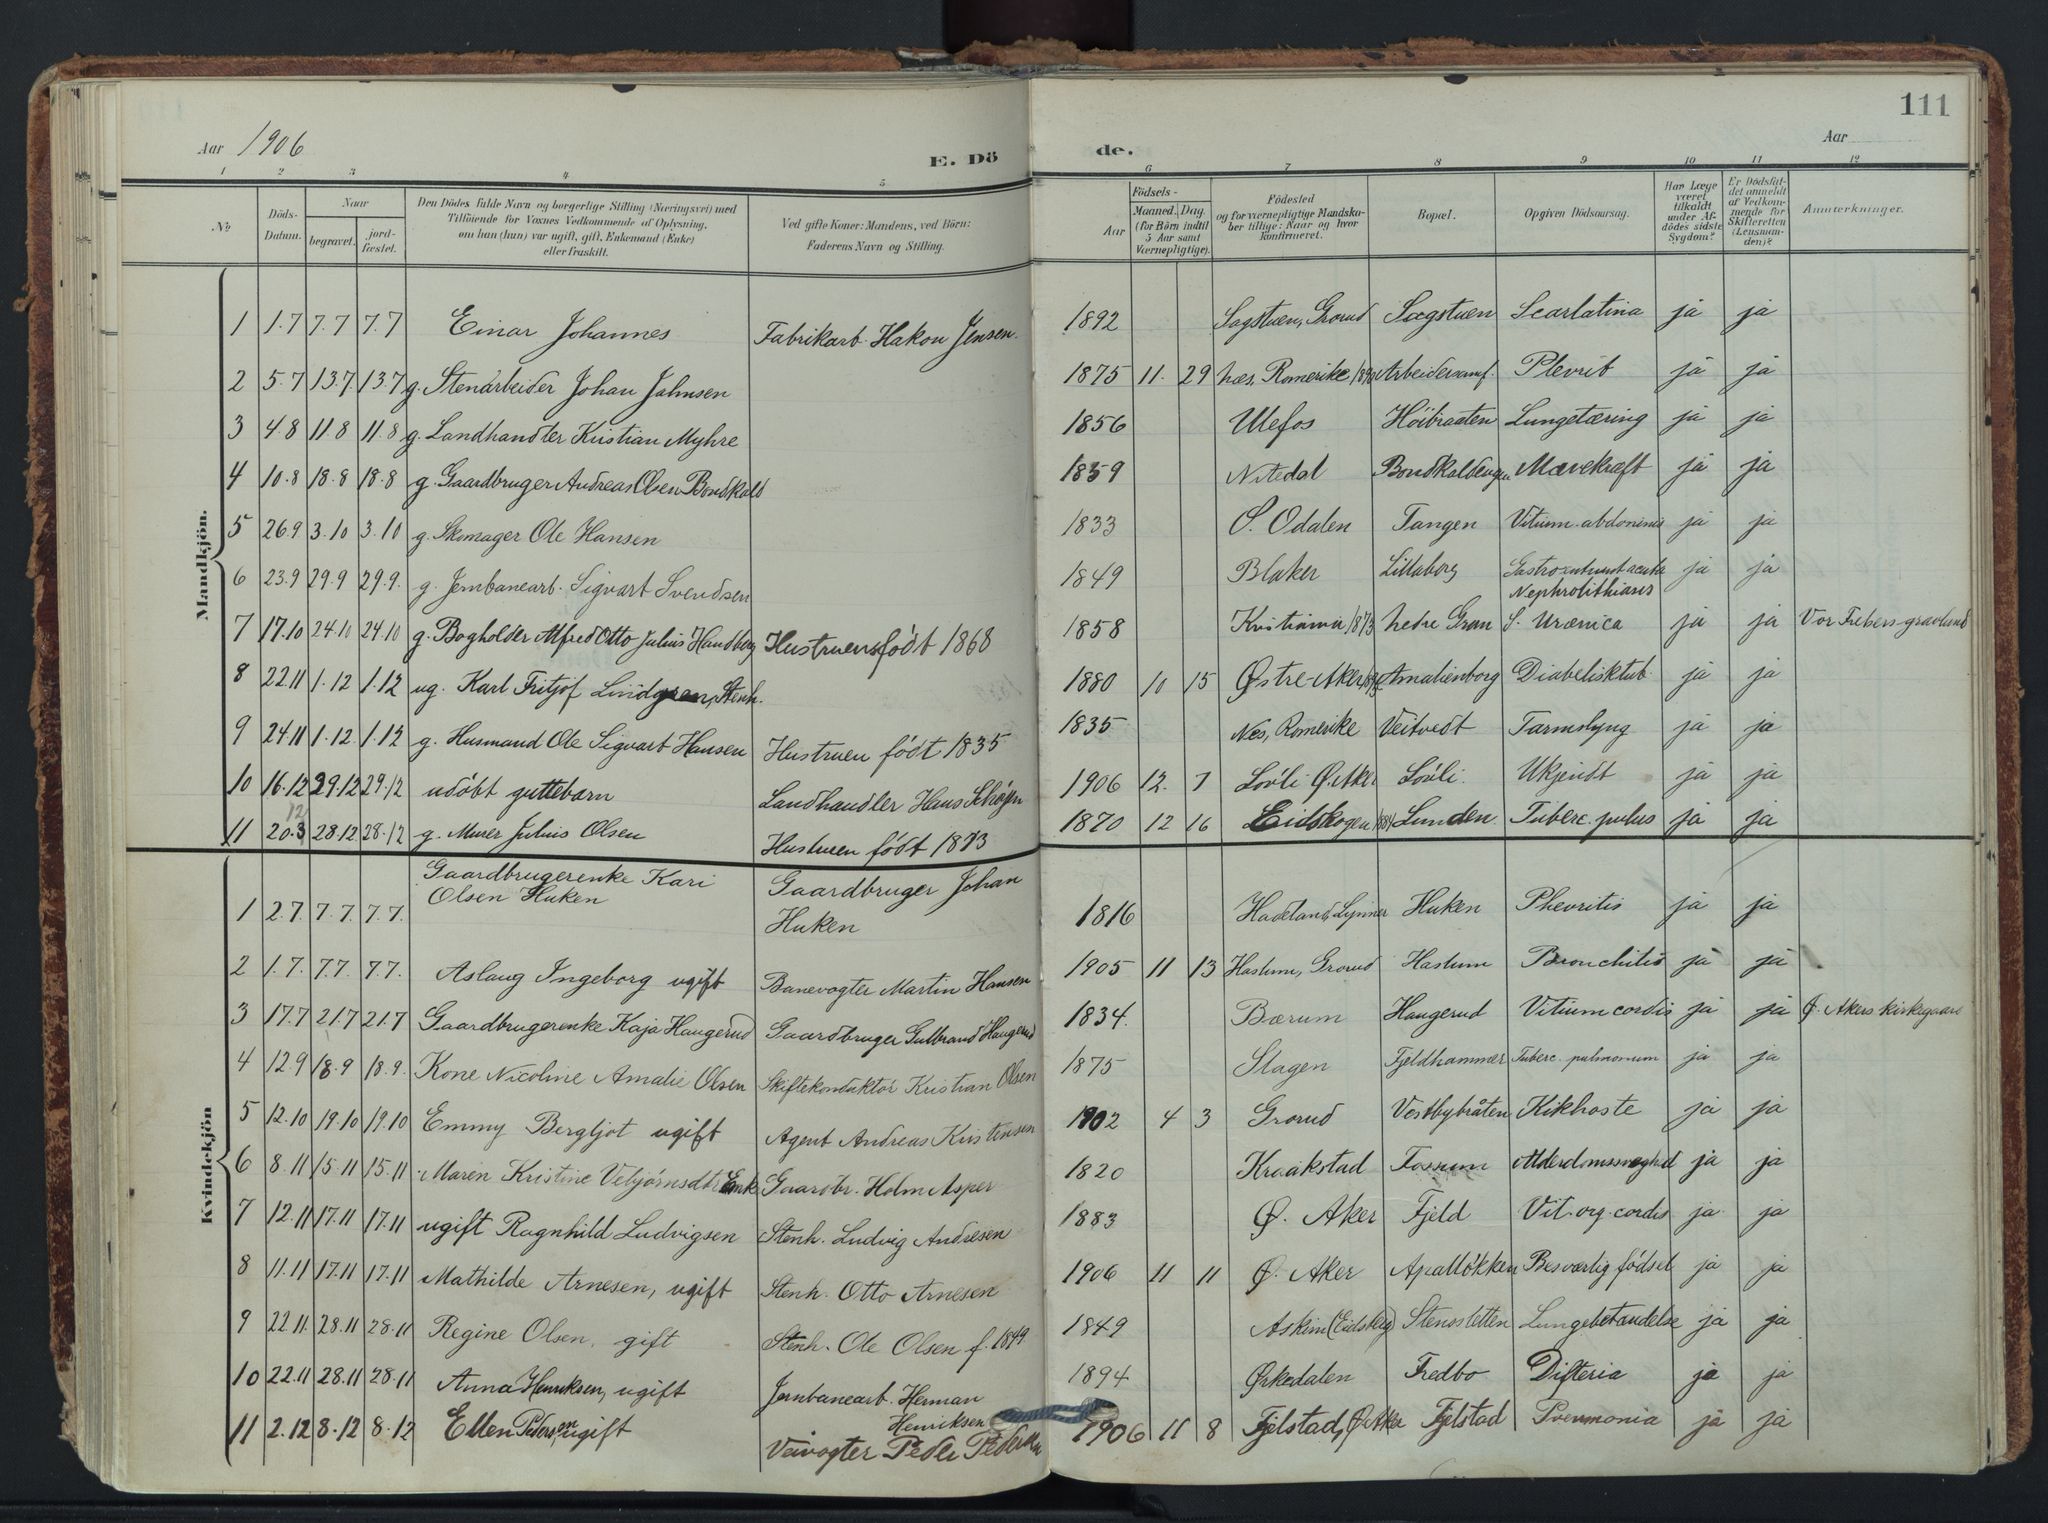 111
Aar 1906
E. Dö de.
Aar
1 2 3 4 5 6 7 8 9 10 11 12
№ Döds-Datum. Naar begravet. jord-fæstet. Den Dödes fulde Navn og borgerlige Stilling (Næringsvei) med Tilföiende for Voxnes Vedkommende af Oplysning, om han (hun) var ugift, gift, Enkemand (Enke) eller fraskilt. Ved gifte Koner: Mandens, ved Börn: Faderens Navn og Stilling. Födsels- Aar Maaned. Dag. (for Börn indtil 5 Aar samt Værnepligtige). Födested og for værnepligtige Mandskaber tillige: Naar og hvor konfirmeret. Bopæl. Opgiven Dödsaarsag. Har Læge været tilkaldt under Afdödes sidste Sygdom? Er Dödsfaldet anmeldt af Vedkommende for Skifteretten (Lensmanden)? Anmerkninger.
Mandkjön.
1 1.7 7.7 7.7 Einar Johannes Fabrikarb. Hakon Jensen. 1892 Sagstuen, Grorud Sagstuen Scarlatina ja ja
2 5.7 13.7 13.7 g. Stenarbeider Johan Johnsen 1875 11. 29 Næs, Romerike Arbeidersamf. Plevrit ja ja
3 4.8 11.8 11.8 g. Landhandler Kristian Myhre 1856 Ulefos Höibraaten Lungetæring ja ja
4 10.8 18.8 18.8 g. Gaardbruger Andreas Olsen Bondkald 1859 Nitedal Bondkaldengen Mavekræft ja ja
5 26.9 3.10 3.10 g. Skomager Ole Hansen 1833 S. Odalen Tangen Vitium abdominis ja ja
6 23.9 29.9 29.9. g. Jernbanearb. Sigvart Svendsen 1849 Blaker Lillaborg acuta Nephrolithiasis ja ja
7 17.10 24.10 24.10 g. Bogholder Alfred Otto Julius Handberg Hustruen født 1868 1858 Kristiania 1873 Nedre Gran Uræmica ja ja Vor Frelsers gravlund
8 22.11 1.12 1.12 ug. Karl Fritjof Lindgren, Stenh. 1880 10 15 Østre-Aker Amalienborg ja ja
9 24.11 1.12 1.12 g. Husmand Ole Sigvart Hansen Hustruen født 1835 1835 Nes, Romerike Veitvedt Tarmslyng ja ja
10 16.12 29.12 29.12 udöbt guttebarn Landhandler Hans Schøyen 1906 12. 7 Lövli Ø. Aker Lövli. Ukjendt ja ja
11 20.12 28.12 28.12 g. Murer Julius Olsen Hustruen født 1873 1870 12 16 Eidskogen Lunden. Tuberc. pulm ja ja
Kvindekjön
1 2.7. 7.7. 7.7. Gaardbrugerenke Kari Olsen Huken Gaardbruger Johan Huken 1816 Hadeland, Lynner Huken Plevritis ja ja
2 1.7. 7.7. 7.7. Aslaug Ingeborg ugift Banevogter Martin Hansen 1905 11 13 Haslum, Grorud Haslum Bronchitis ja ja
3 17.7 21.7 21.7 Gaardbrugerenke Kaja Haugerud Gaardbruger Gulbrand Haugerud 1834. Bærum Haugerud Vitium cordis ja ja Ø. Akers kirkegaard
4 12.9 18.9 18.9. Kone Nicoline Amalie Olsen Skiftekonduktör Kristian Olsen 1875 Slagen Fjeldhammer Tuberc. pulmonum ja ja
5 12.10 19.10 19.10 Emmy Bergljot ugift Agent Andreas Kristensen 1902 4 3 Grorud Vestbybråten Kikhoste ja ja
6 8.11 15.11 15.11 Maren Kristine Vebjørnsdtr Enke Gaardbr. Holm Asper 1820 Kraakstad Fossum Alderdomssvaghed ja ja
7 12.11 17.11 17.11 ugift Ragnhild Ludvigsen Stenh. Ludvig Andresen 1883 Ø. Aker Fjeld Vit. org. cordis ja ja
8 11.11 17.11 17.11 Mathilde Arnesen, ugift Stenh. Otto Arnesen 1906 11 11 Ø. Aker Apalløkken Besværlig födsel ja ja
9 22.11. 28.11 28.11 Regine Olsen, gift Stenh. Ole Olsen f. 1849 1849 Askim (Eidsberg) Stensletten Lungebetændelse ja ja
10 22.11 28.11 28.11 Anna Henriksen, ugift Jernbanearb. Herman Henriksen 1894 Ørkedalen Fredbo Difteria ja ja
11 2.12 8.12 8.12 Ellen Pedersen ugift Veivogter Peder Pedersen 1906 11 8 Fjelstad, Ø. Aker Fjelstad Pneumonia ja ja